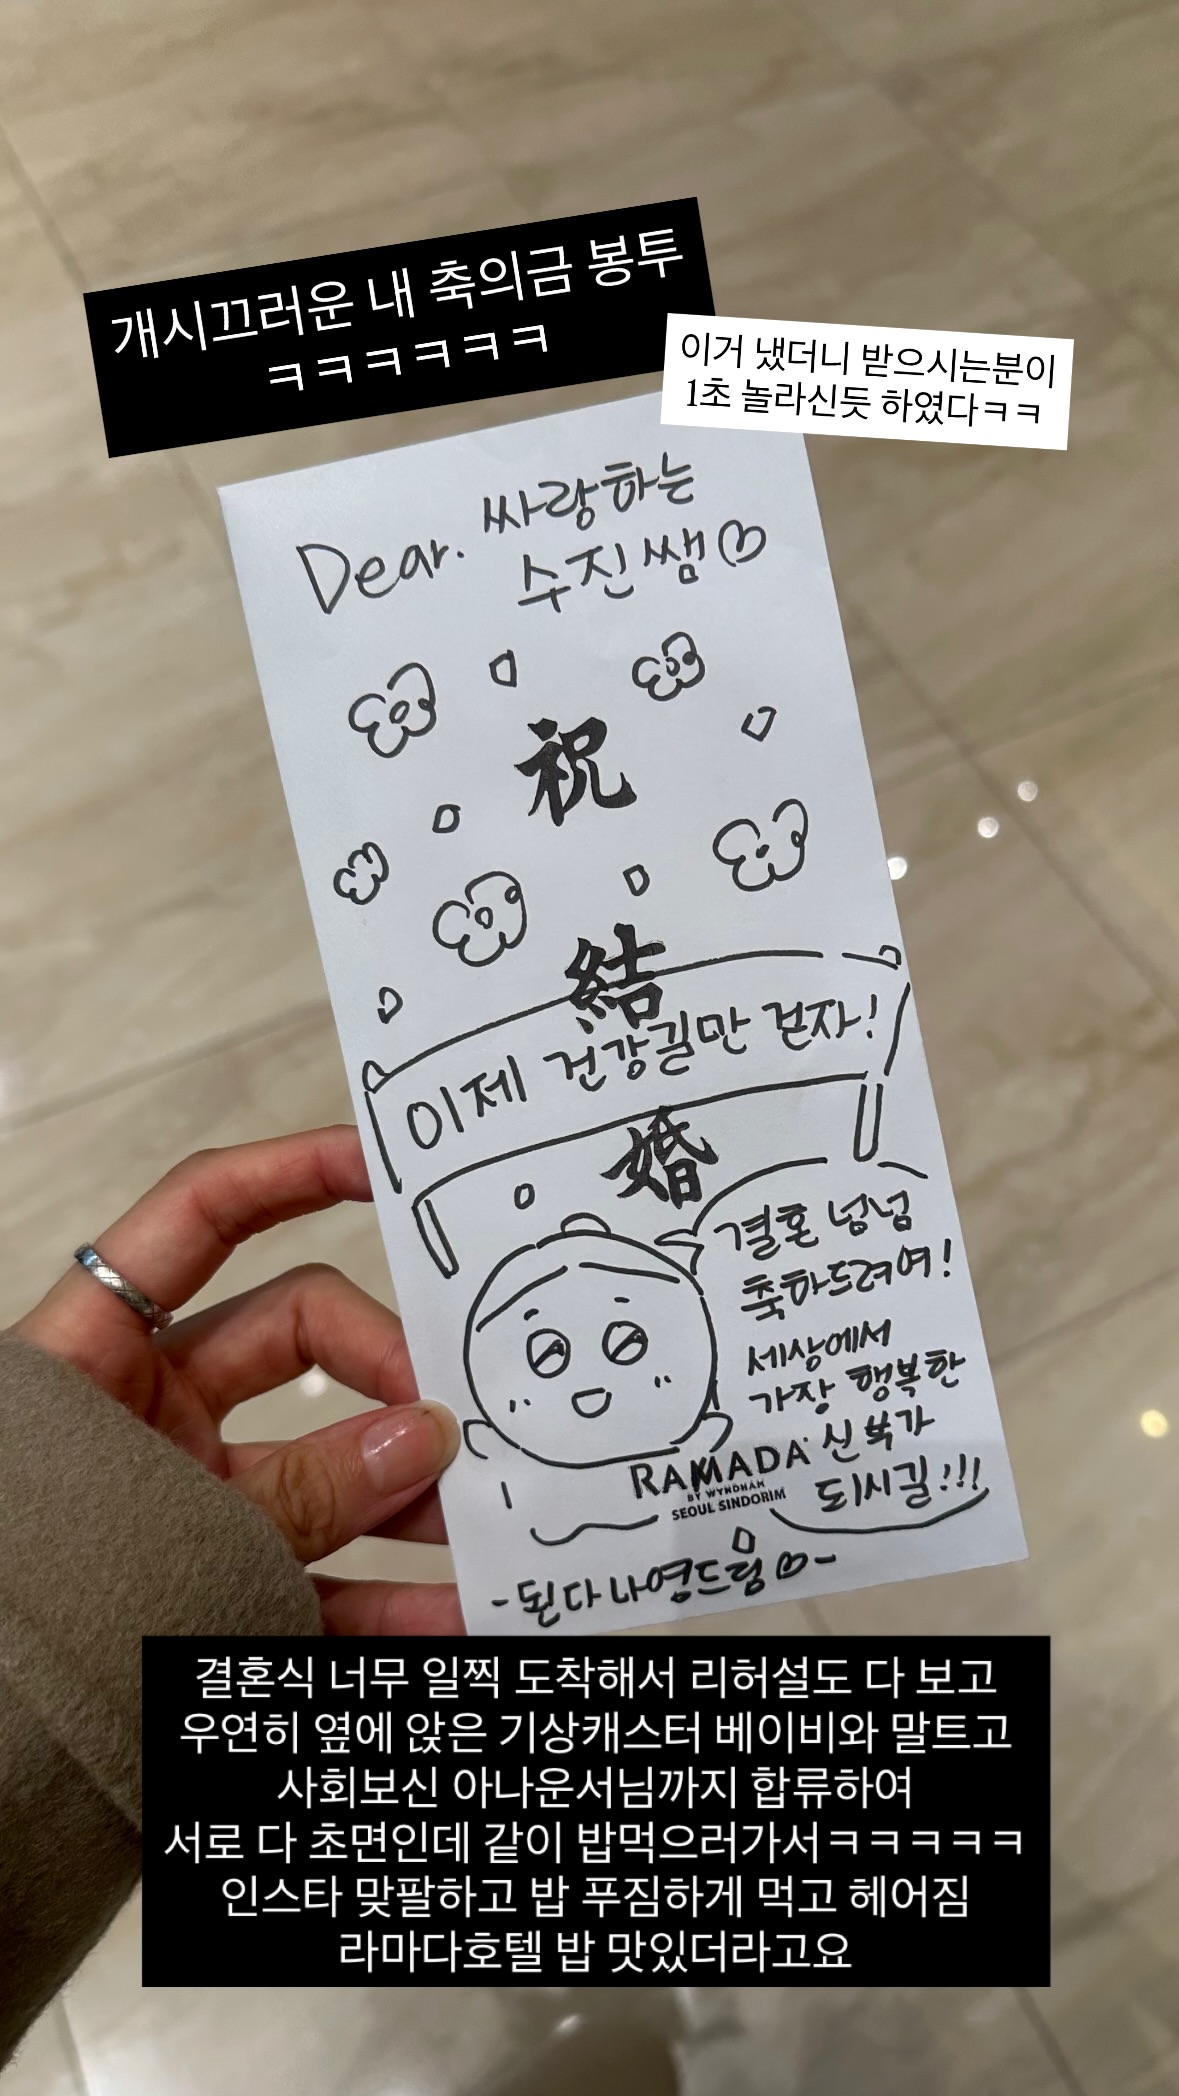 개시끄러운 내 축의금 봉투
ㅋㅋㅋㅋㅋㅋ
이거 냈더니 받으시는분이
1초 놀라신듯 하였다ㅋㅋ
Dear. 싸랑하는
수진쌤♡
祝
結
이제 건강길만 걷자!
婚
결혼 넘넘
축하드려여!
세상에서
가장 행복한
신부가
되시길!!!
RAMADA
BY WYNDHAM
SEOUL SINDORIM
-된다 나영드림♡-
결혼식 너무 일찍 도착해서 리허설도 다 보고
우연히 옆에 앉은 기상캐스터 베이비와 말트고
사회보신 아나운서님까지 합류하여
서로 다 초면인데 같이 밥먹으러가서ㅋㅋㅋㅋㅋ
인스타 맞팔하고 밥 푸짐하게 먹고 헤어짐
라마다호텔 밥 맛있더라고요